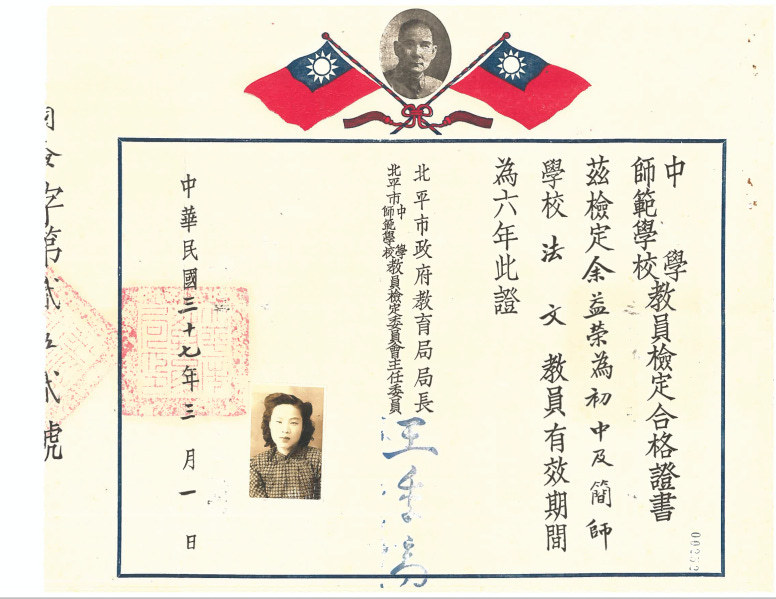 中學
師範學校教員檢定合格證書
茲檢定余益荣為初中及簡師
學校法文教員有效期間
為六年此證
北平市政府教育局局長
北平市中學師範學校教員檢定委員會主任委員
王季高
中華民國三十七年三月一日
字第貳五貳號